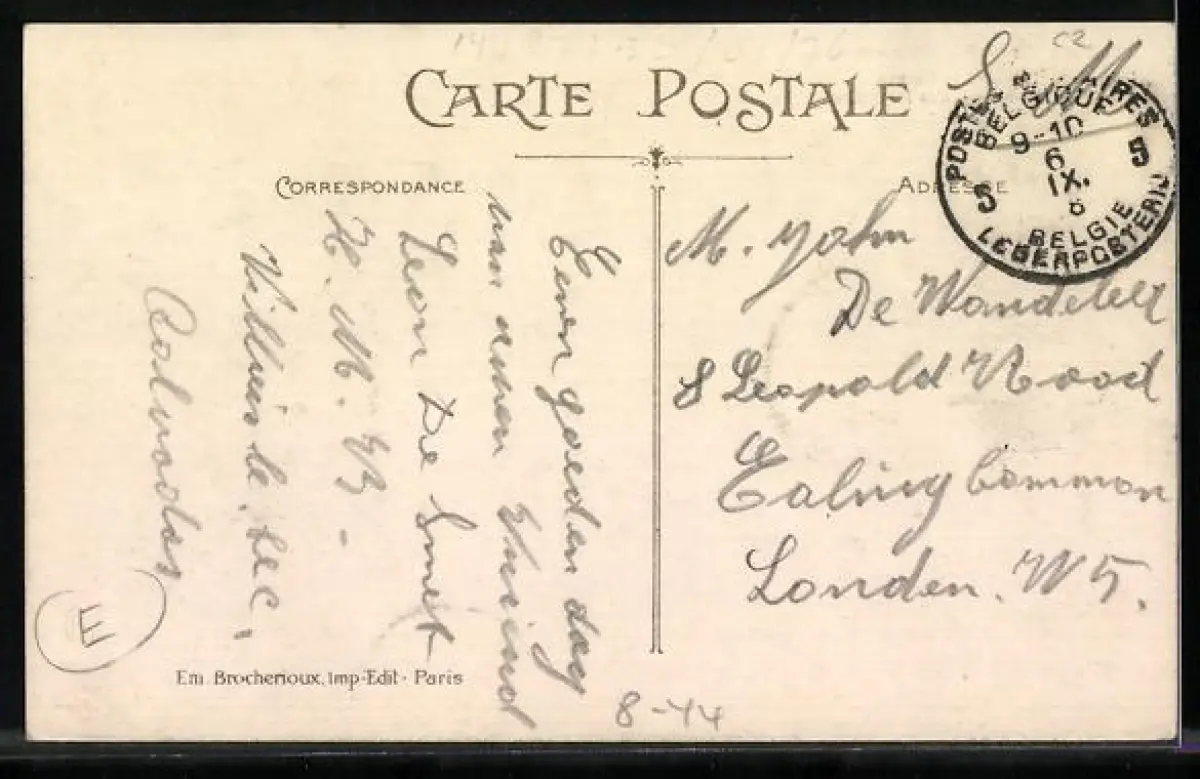 CARTE POSTALE
CORRESPONDANCE
ADRESSE
S. M
POSTES MILITAIRES
BELGIQUE
9-10
6
IX.
5 5
BELGIE
LEGERPOSTERIJ
Eenen goeden dag
van uwen Vriend
Leon De Smet
Z. M. B -
Villiers le Sec,
Calvados
M. John
De Wandeleer
8 Leopold Road
Ealing Common
Londen. W 5.
E
Em Brocherioux, Imp-Edit · Paris
8-44